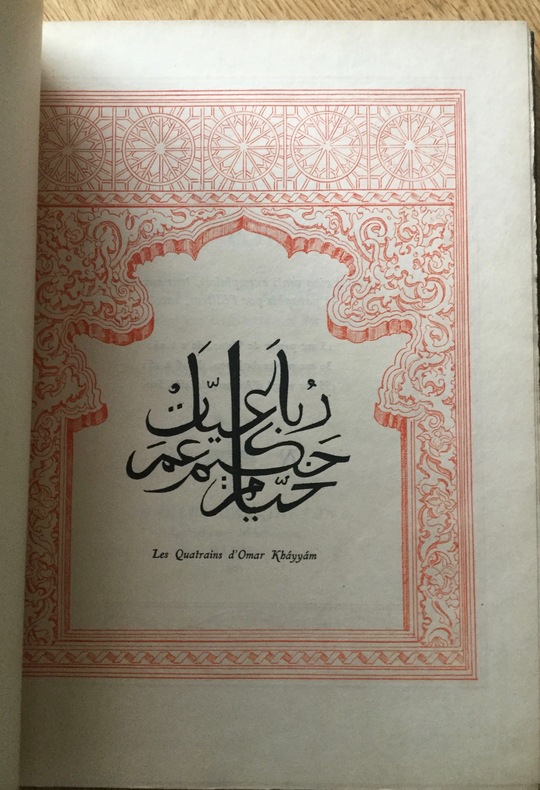 رُباَعيّات
حَكيم عُمَر
خيّام
Les Quatrains d'Omar Kháyyám